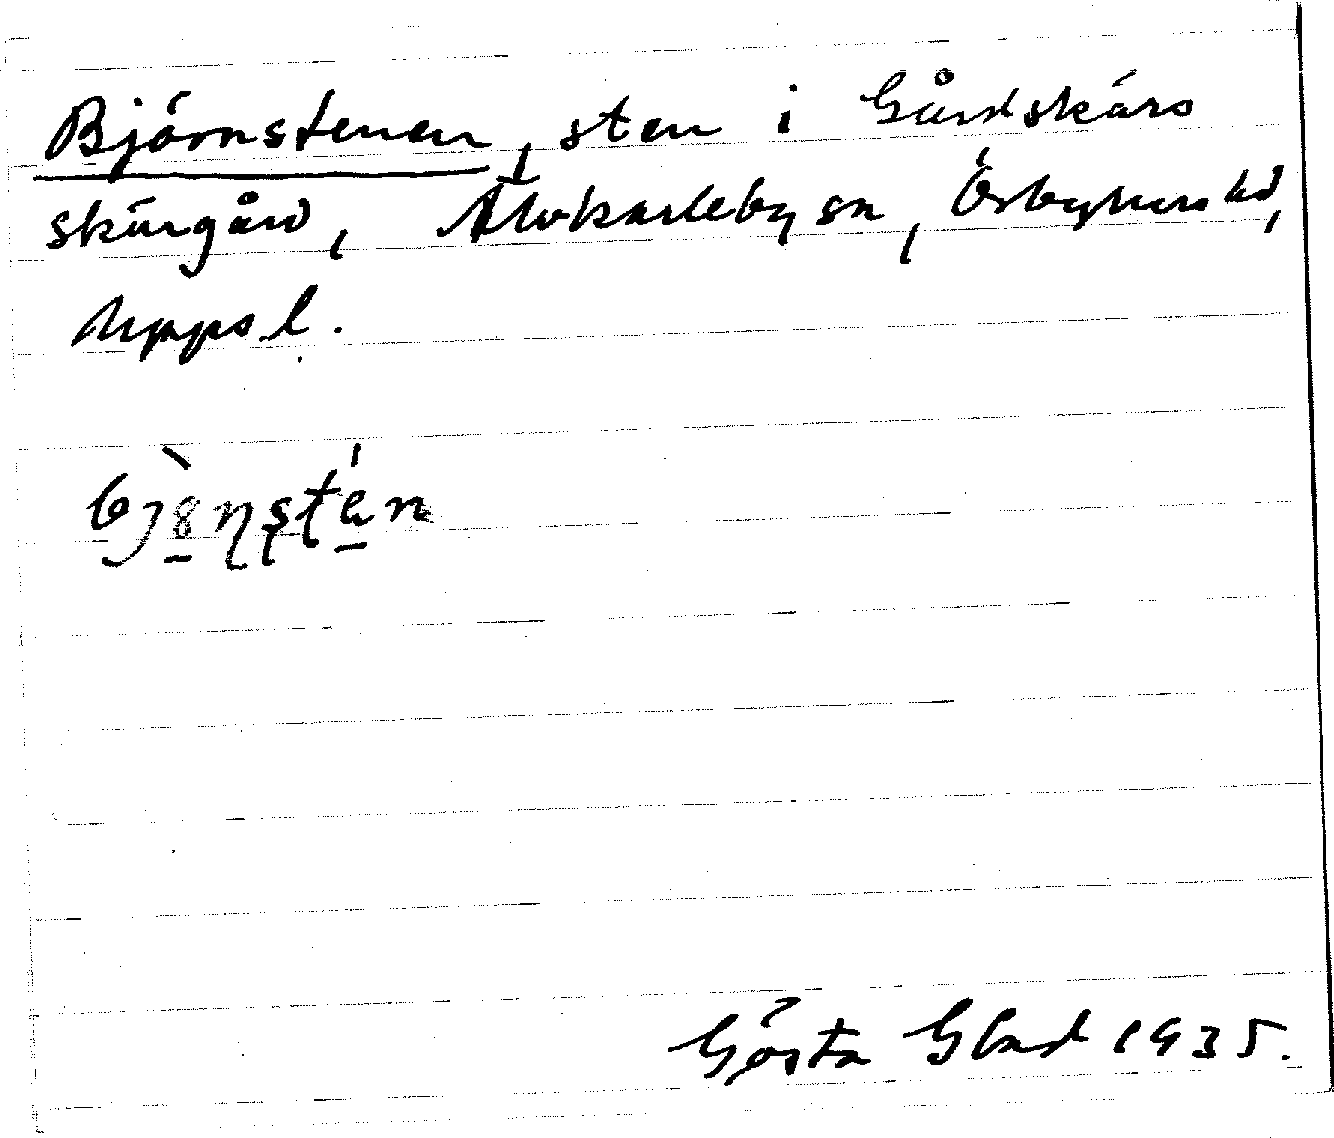 Björnstenen, sten i Gårdskärs
skärgård, Älvkarleby sn, Örbyhus hd,
Uppsl.
bjö̱̀ɳʂté̱n
Gösta Glad 1935.